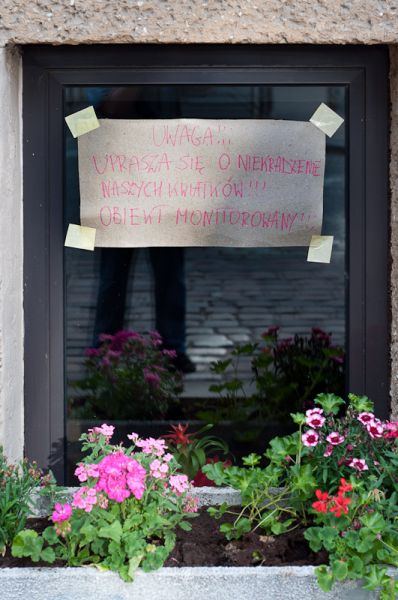 UWAGA!!!
UPRASZA SIĘ O NIEKRADZENIE
NASZYCH KWIATKÓW!!!
OBIEKT MONITOROWANY!!!